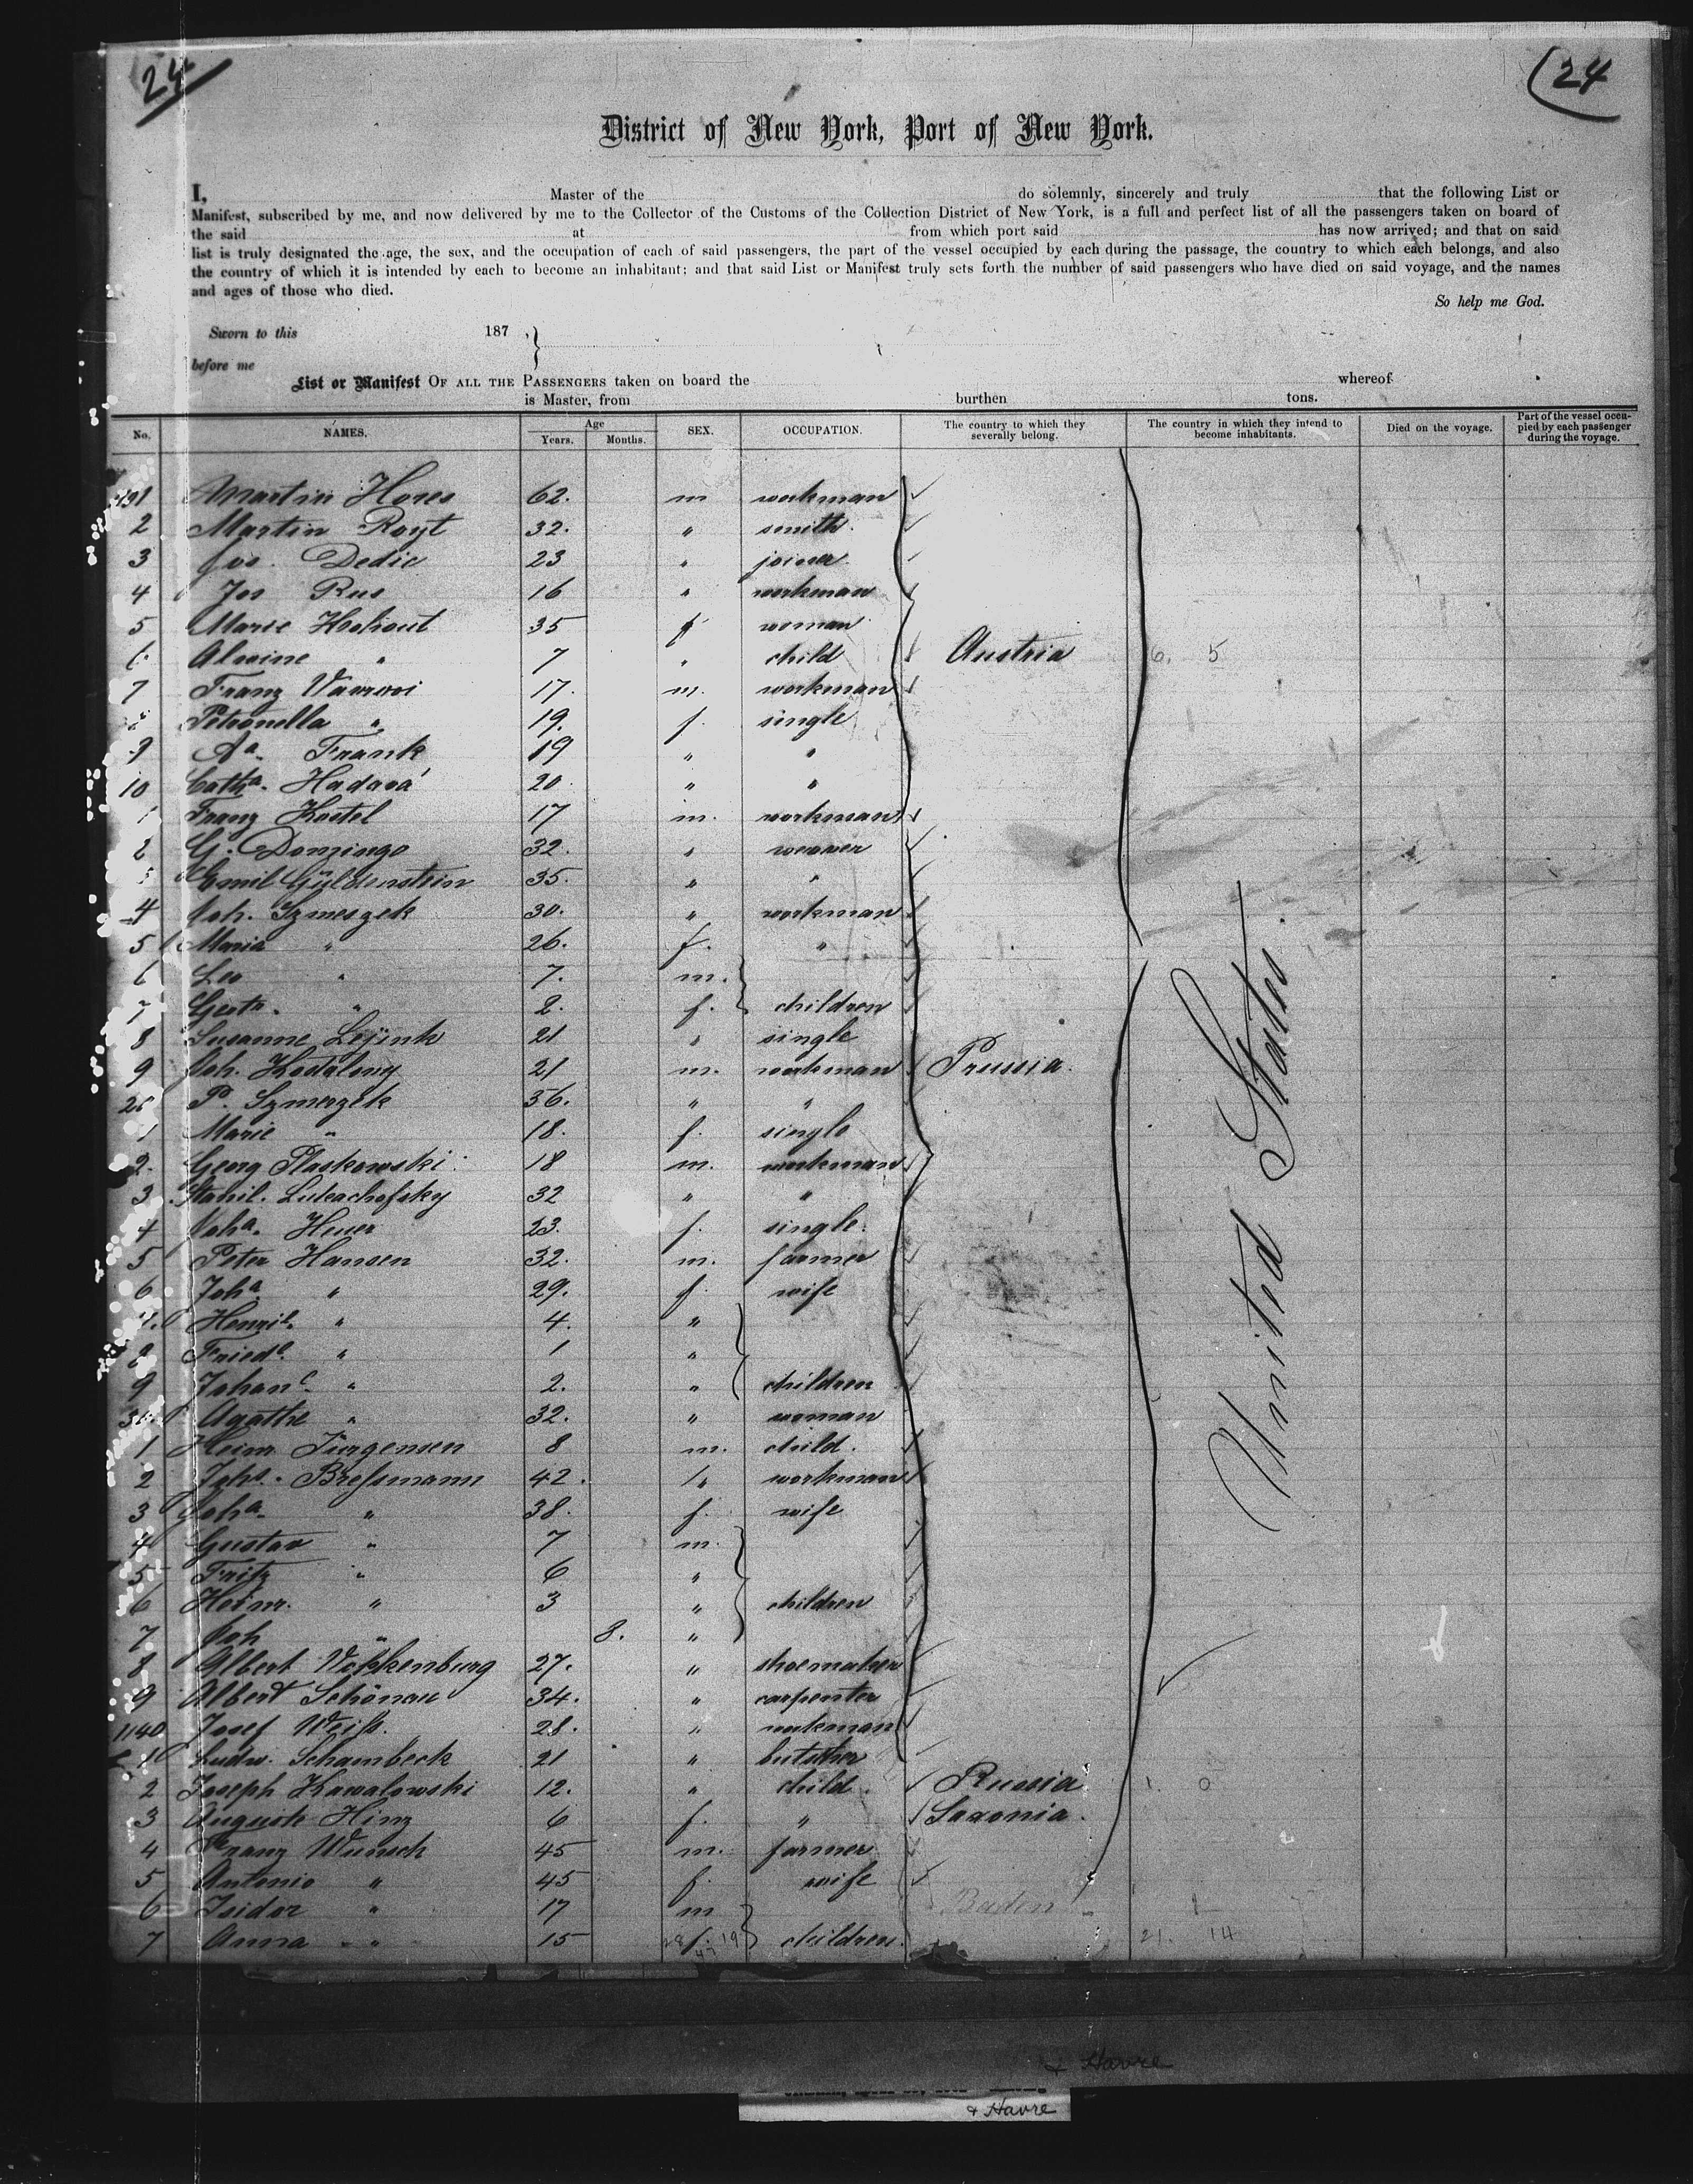 24
(24
District of New York, Port of New York.
I, Master of the do solemnly, sincerely and truly that the following List or
Manifest, subscribed by me, and now delivered by me to the Collector of the Customs of the Collection District of New York, is a full and perfect list of all the passengers taken on board of
the said at from which port said has now arrived; and that on said
list is truly designated the age, the sex, and the occupation of each of said passengers, the part of the vessel occupied by each during the passage, the country to which each belongs, and also
the country of which it is intended by each to become an inhabitant; and that said List or Manifest truly sets forth the number of said passengers who have died on said voyage, and the names
and ages of those who died.
So help me God.
Sworn to this 187 ,}
before me
List or Manifest OF ALL THE PASSENGERS taken on board the whereof
is Master, from burthen tons.
No. NAMES. Age Years. Months. SEX. OCCUPATION. The country to which they severally belong. The country in which they intend to become inhabitants. Died on the voyage. Part of the vessel occupied by each passenger during the voyage.
Martin Hores 62. m workman
2 Martin 32. " smith.
3 Jos. Dedic 23 " joiner
4 Jos Rus 16 " workman
5 Marie 35 f woman
6. Alwine " 7 " child Austria 6. 5
7 Franz 17. m. workman
Petronella " 19. f. single
9 Aa. Frank 19 " "
10 Catha. Hadavá 20 " "
1 Franz Kostel 17 m. workman
2 G. Domingo 32. " weaver
Emil Güldenstein 35. " "
4 Joh. Szmeszek 30. " workman
5 Maria " 26. f. "
6 Leo " 7. m.
7 Gertr. " 2. f. children
8 Susanne 21 " single
9 Joh. 21 m. workman Prussia.
20 P. Szmerzek 36. " "
1 Marie " 18. f. single
2. Georg Plaskowski 18 m. workman
3 Stanil. Lukachofsky 32 " "
4 Joha. Heuer 23. f. single.
5 Peter Hansen 32. m. farmer
6 Joha. " 29. f. wife
7. " 4. "
8 Friedc. " 1 "
9 Johanc. " 2. " children
30. Agathe " 32. " woman
1 Heinr Jürgensen 8 m. child.
2 Johs. Breßmann 42. " workman
3 Joha. " 38. f. wife
4 Gustav " 7 m.
5 Fritz " 6 "
6 Heinr. " 3 " children
7 Joh " 8. "
8 Albert Vökkenburg 27. " shoemaker
9 Albert Schönau 34. " carpenter
1140 Josef Weiß. 28. " workman
1 Ludw. Schambeck 21 " butcher
2 Joseph Kawalowski 12. " child. Russia 1. 0
3 Auguste Hinz 6 f. " Saxonia.
4 Franz Wunsch 45 m. farmer
5 Antonie " 45 f. wife
6 Isidor " 17 m Baden
7 Anna " 15 f. children. 21. 14
United States.
& Havre
& Havre